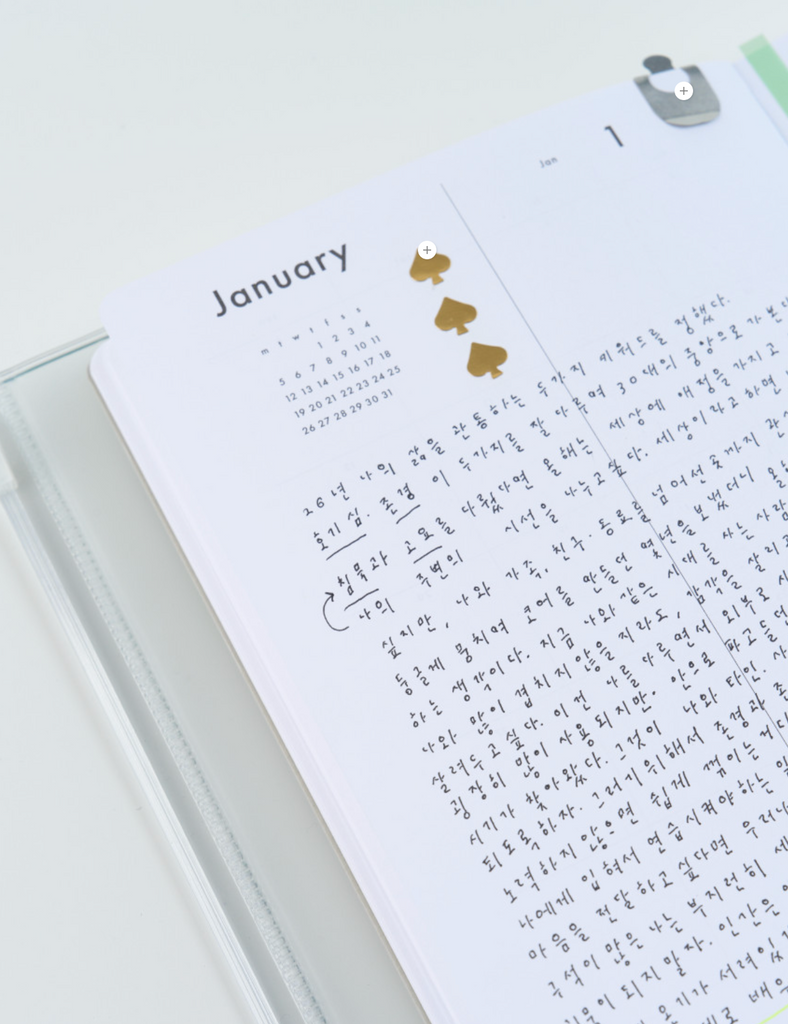 January
Jan 1
m t w t f s s
1 2 3 4
5 6 7 8 9 10 11
12 13 14 15 16 17 18
19 20 21 22 23 24 25
26 27 28 29 30 31
26년 나의 삶을 관통하는 두가지 키워드를 정했다.
호기심. 존경 이 두가지를 잘 다루며 30대의 중앙으로 가본다
침묵과 고요를 다뤘다면 올해는 세상에 애정을 가지고
나의 주변의 시선을 나누고싶다. 세상이라고 하면
싶지만, 나와 가족, 친구. 동료를 넘어선 숯까지
둥글게 뭉치며 코어를 만들던 몇년을 보냈더니
하는 생각이다. 지금 나와 같은 시대를 사는 사람
나와 많이 겹치지 않을 지라도, 감각을 살리고
살려두고 싶다. 이건 나를 다루면서 외부로
굉장히 많이 사용되지만. 안으로 파고들던
시기가 찾아왔다. 그것이 나와 타인.
되도록 하자. 그러기위해서 존경과
노력하지 않으면 쉽게 꺾이는
나에게 입혀서 연습시켜야하는
마음을 전달하고 싶다면 우리
구석이 많은 나는 부지런히
되지 말자. 인간은
오기가 서려있
배우